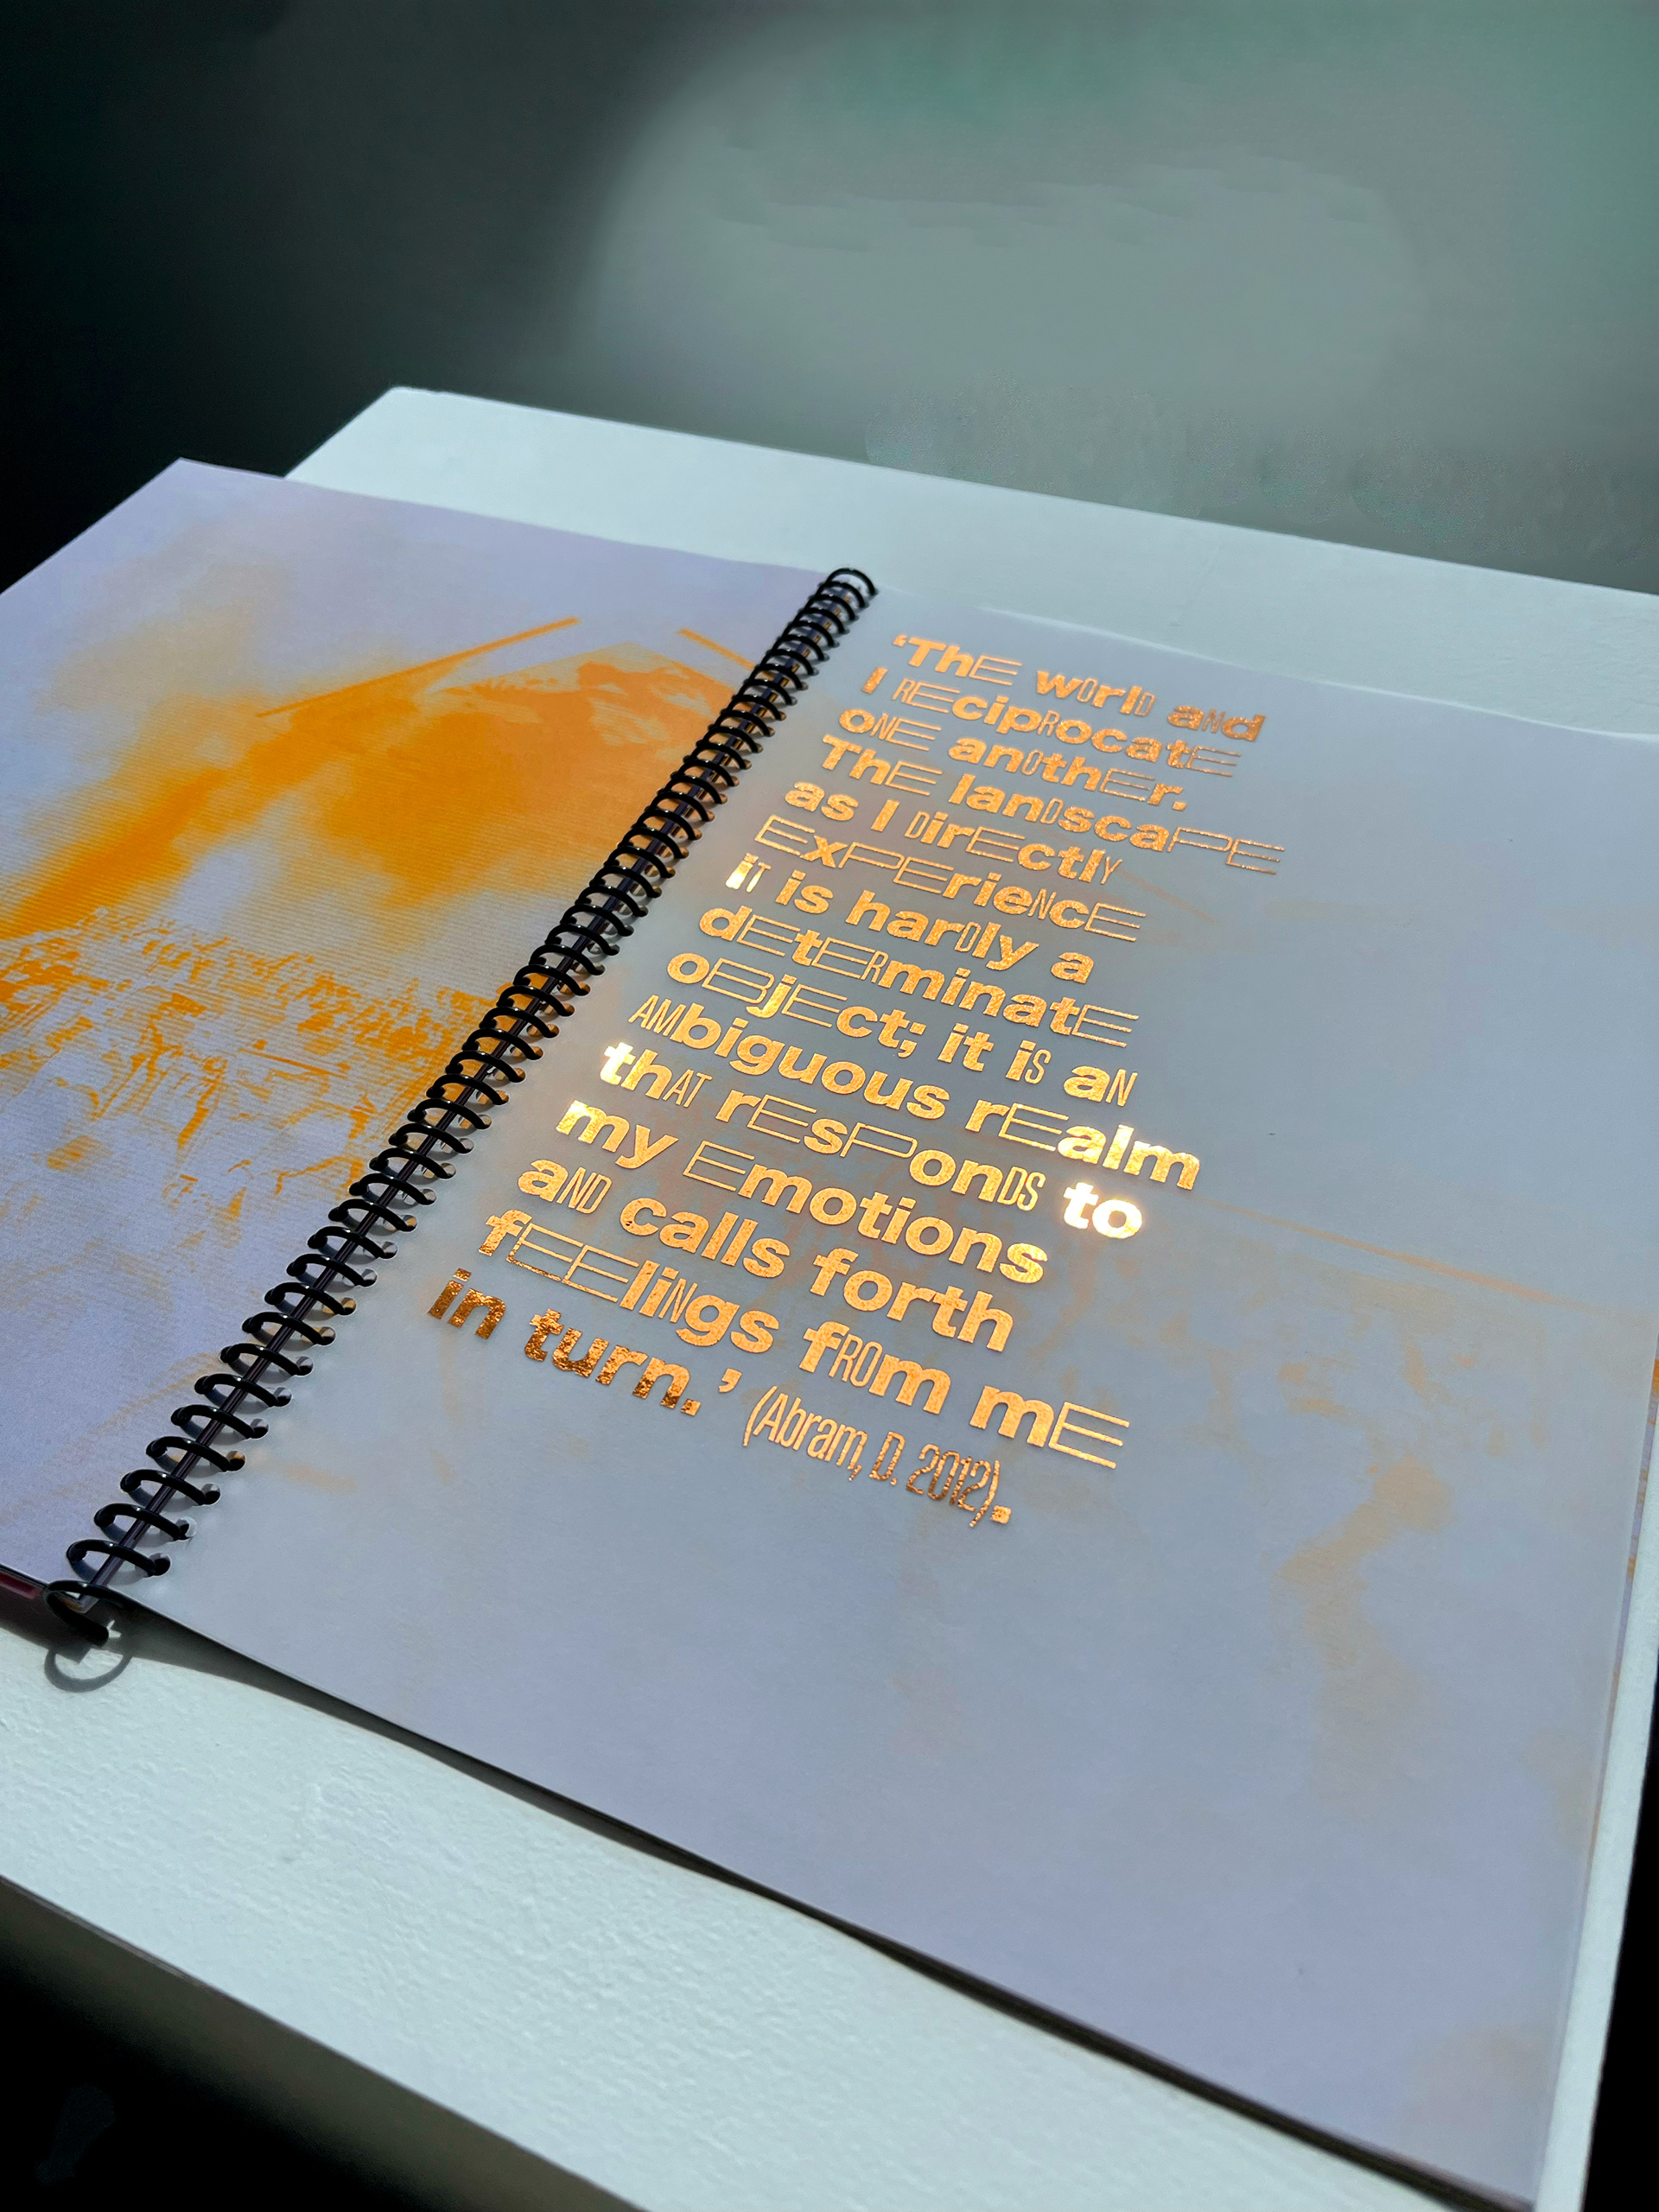 ‘ThE wOrlD aNd
I REcipRocatE
ONE anOthEr.
ThE lanDscaPE
as I DirEctlY
ExPErieNcE
iT is harDly a
dEtERminatE
oBjEct; it iS aN
AMbiguous rEalm
thAT rEsPonDS to
my Emotions
aND calls forth
fEEliNgs fROm mE
in turn.’ (Abram, D. 2012).